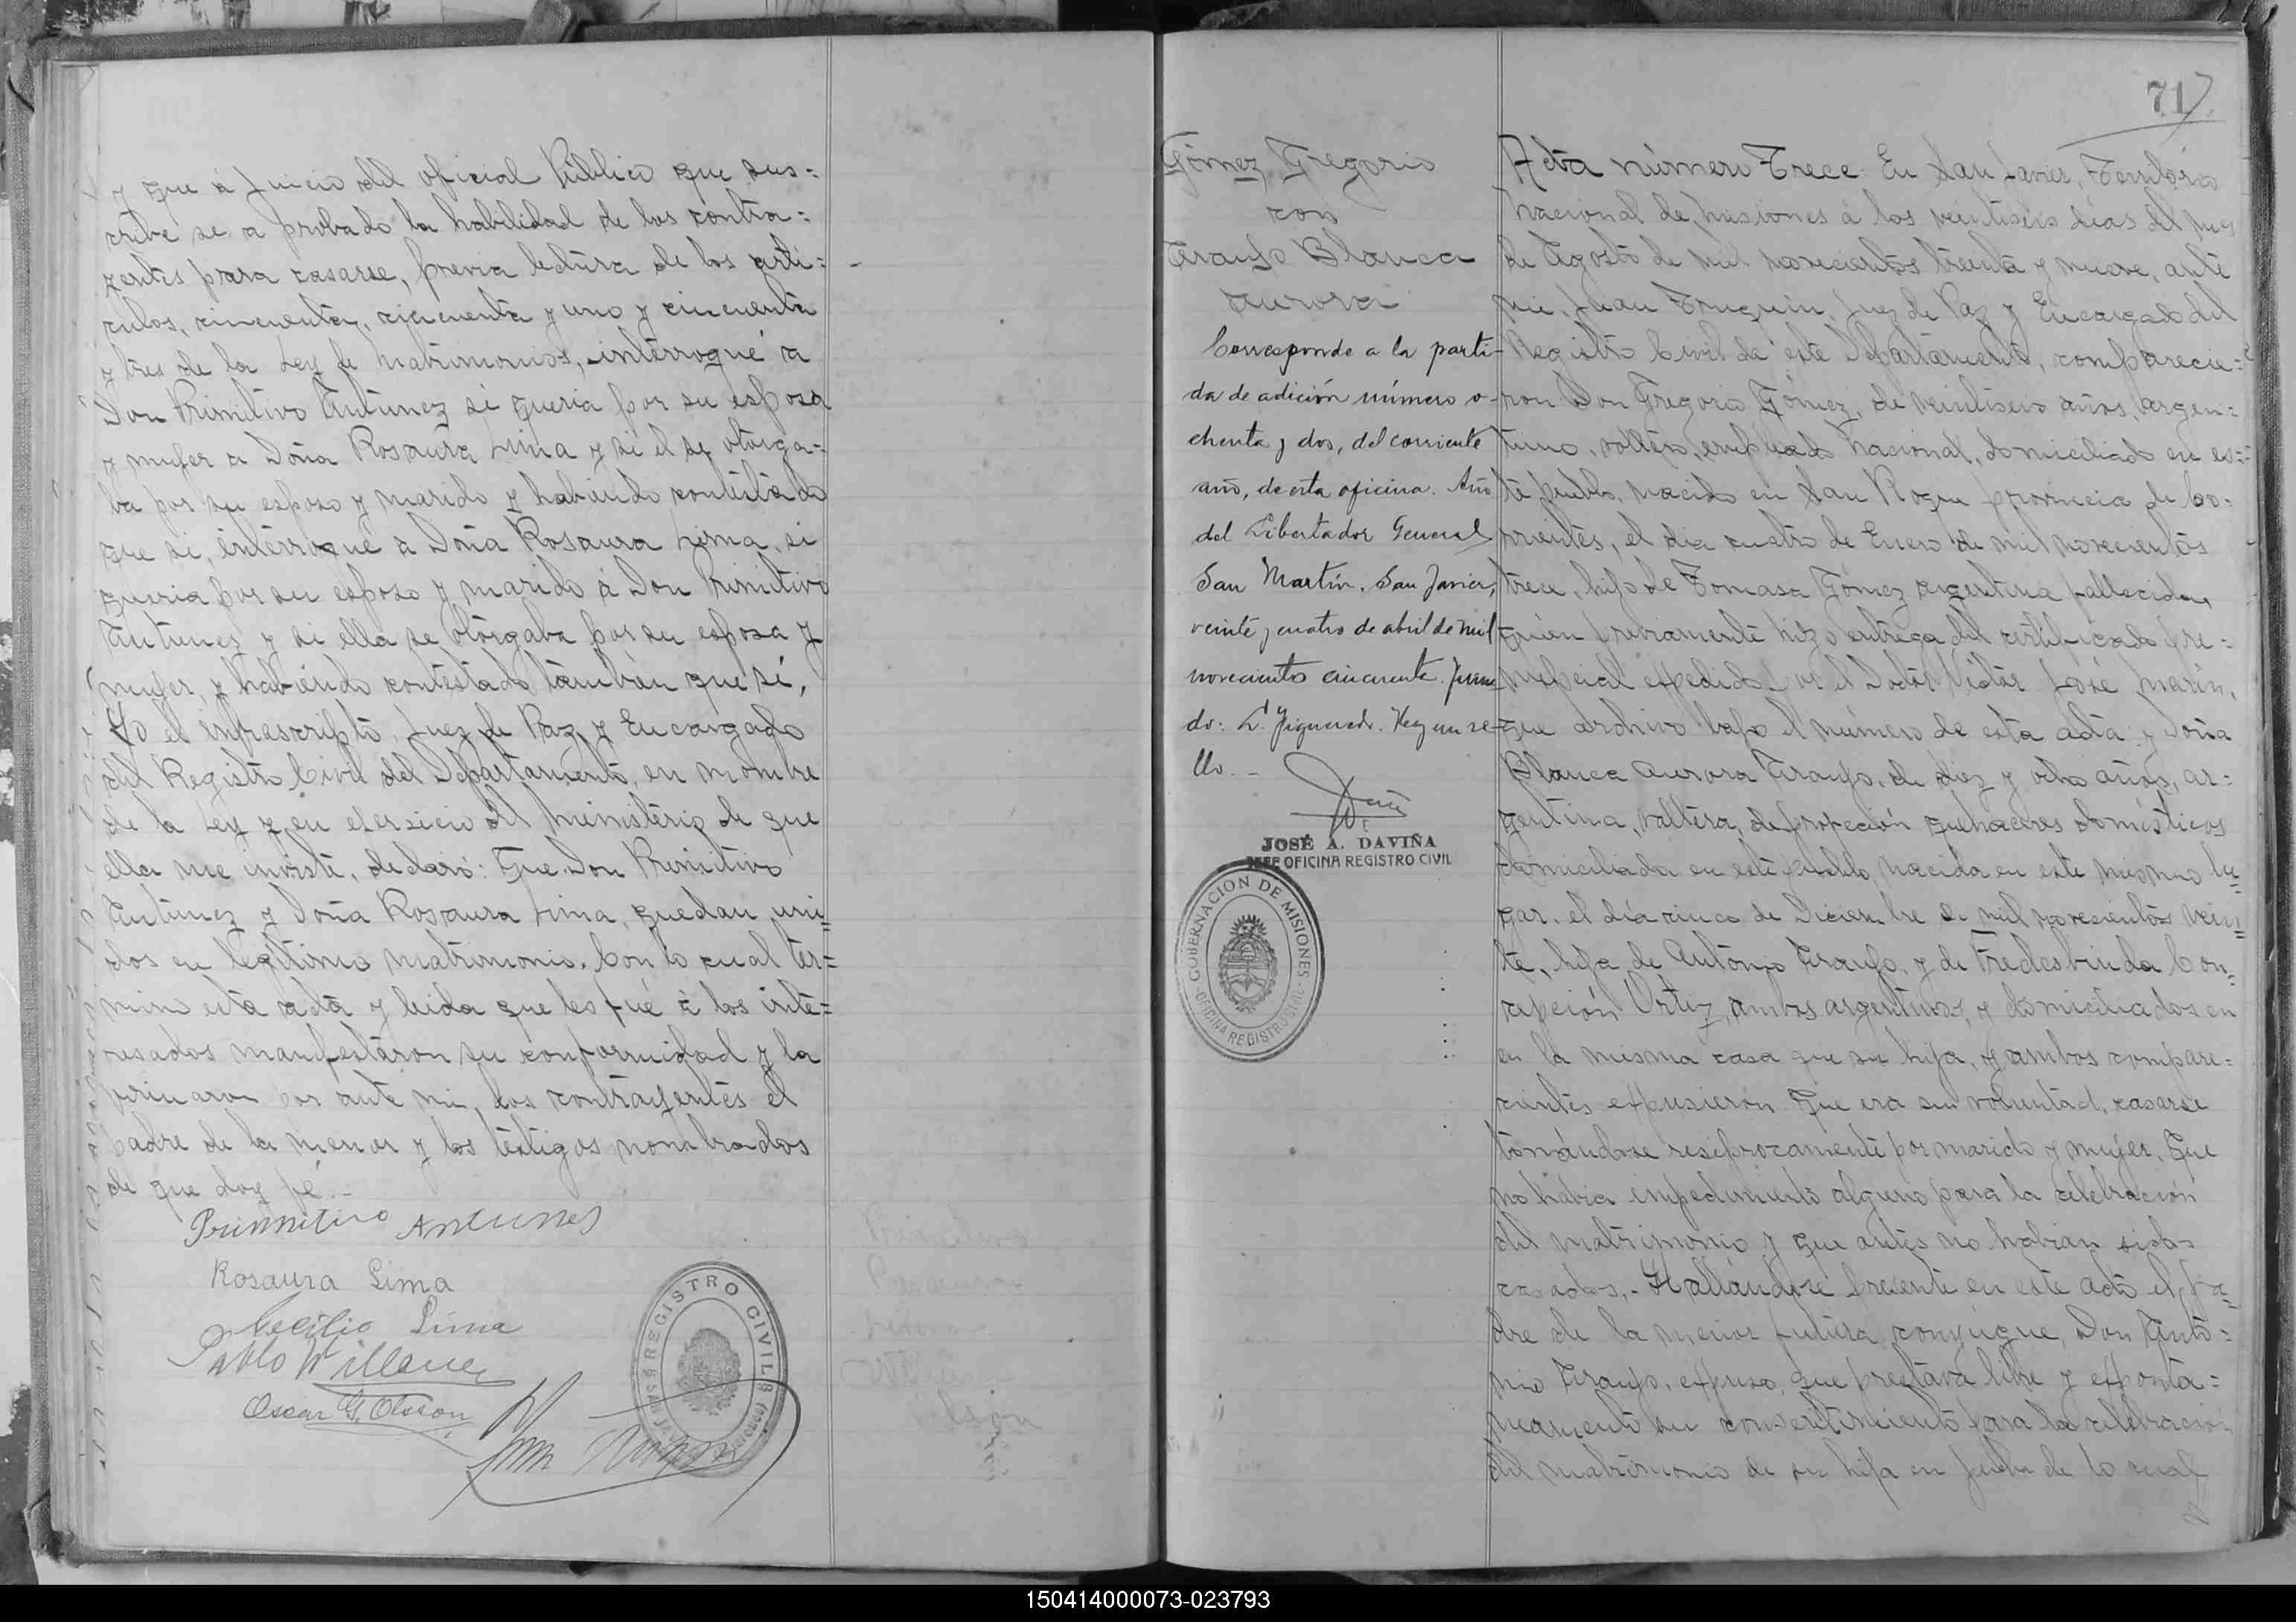 y que á juicio del oficial Público que sus=
cribe se a probado la habilidad de los contra=
yentes para casarse, previa lectura de los arti=
culos, cincuenta, cincuenta y uno y cincuenta
y tres de la Ley de Matrimonios, interrogué a
Don Primitivo Antunez si queria por su esposa
y mujer a Doña Rosaura Lima y si el se otorga=
ba por su esposo y marido y habiendo contestado
que si, interrogué a Doña Rosaura Lima, si
queria por su esposo y marido á Don Primitivo
Antunez y si ella se otorgaba por su esposa y
mujer, y habiendo contestado tambien que sí,
Yo el infrascripto, Juez de Paz y Encargado
del Registro Civil del Departamento, en nombre
de la Ley y en ejersicio del ministerio de que
ella me inviste, declaro: Que Don Primitivo
Antunez y Doña Rosaura Lima, quedan uni=
dos en legítimo matrimonio. Con lo cual ter=
mino esta acta y leida que les fué á los inte=
resados manifestaron su conformidad y la
firmaron por ante mi, los contrayentes el
padre de la menor y los testigos nombrados
de que doy fé.-
Primitivo Antunes
Rosaura Lima
Cecilio Lima
Pablo
Oscar G. Olsson
REGISTRO CIVIL
71
Gómez Gregorio
con
Araujo Blanca
Aurora
Corresponde a la parti-
da de adición número o-
chenta y dos, del corriente
año, de esta oficina. Año
del Libertador General
San Martín. San Javier,
veinte y cuatro de abril de mil
novecientos cincuenta. Firma-
do: L. Figueredo. Hay un se-
llo.-
JOSÉ A. DAVIÑA
JEFE OFICINA REGISTRO CIVIL
GOBERNACION DE MISIONES
OFICINA REGISTRO CIVIL
Acta número Trece: En San Javier, Territorio
Nacional de Misiones á los veintiseis dias del mes
de Agosto de mil novecientos treinta y nueve, ante
mi, Juan Juez de Paz y Encargado del
Registro Civil de este Departamento, comparecie=
ron Don Gregorio Gómez, de veintiseis años, argen=
tino, soltero, empleado Nacional, domiciliado en es=
te pueblo, nacido en San Roque provincia de Co=
rrientes, el dia cuatro de Enero de mil novecientos
trece, hijo de Tomasa Gómez argentina fallecida,
quien previamente hizo entrega del certificado pre=
nupcial expedido por el Doctor Victor José Marin,
que archivo bajo el número de esta acta y Doña
Blanca Aurora Araujo, de diez y ocho años, ar=
gentina, soltera, de profeción quehaceres domésticos
domiciliada en este pueblo, nacida en este mismo lu=
gar, el día cinco de Diciembre de mil novecientos vein=
te, hija de Antonio Araujo, y de Fredesbinda Con=
cepción Ortiz, ambos argentinos, y domiciliados en
en la misma casa que su hija, y ambos compare=
cientes expusieron: Que era su voluntad, casarse
tomándose resiprocamente por marido y mujer, Que
no habia impedimiento alguno para la celebración
del matrimonio y que antes no habian sidos
casados.- Hallándose presente en este acto el pa=
dre de la menor futura conyugue, Don Anto=
nio Araujo, expuso que prestava libre y exponta=
neamente su consentimiento para la celebracion
del matrimonio de su hija en prueba de lo cual
150414000073-023793